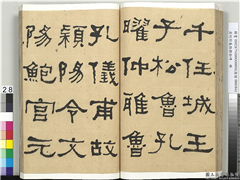 千任城王
子松魯孔
曜仲雅魯
孔儀甫故
潁陽令文
陽鮑宮元
28